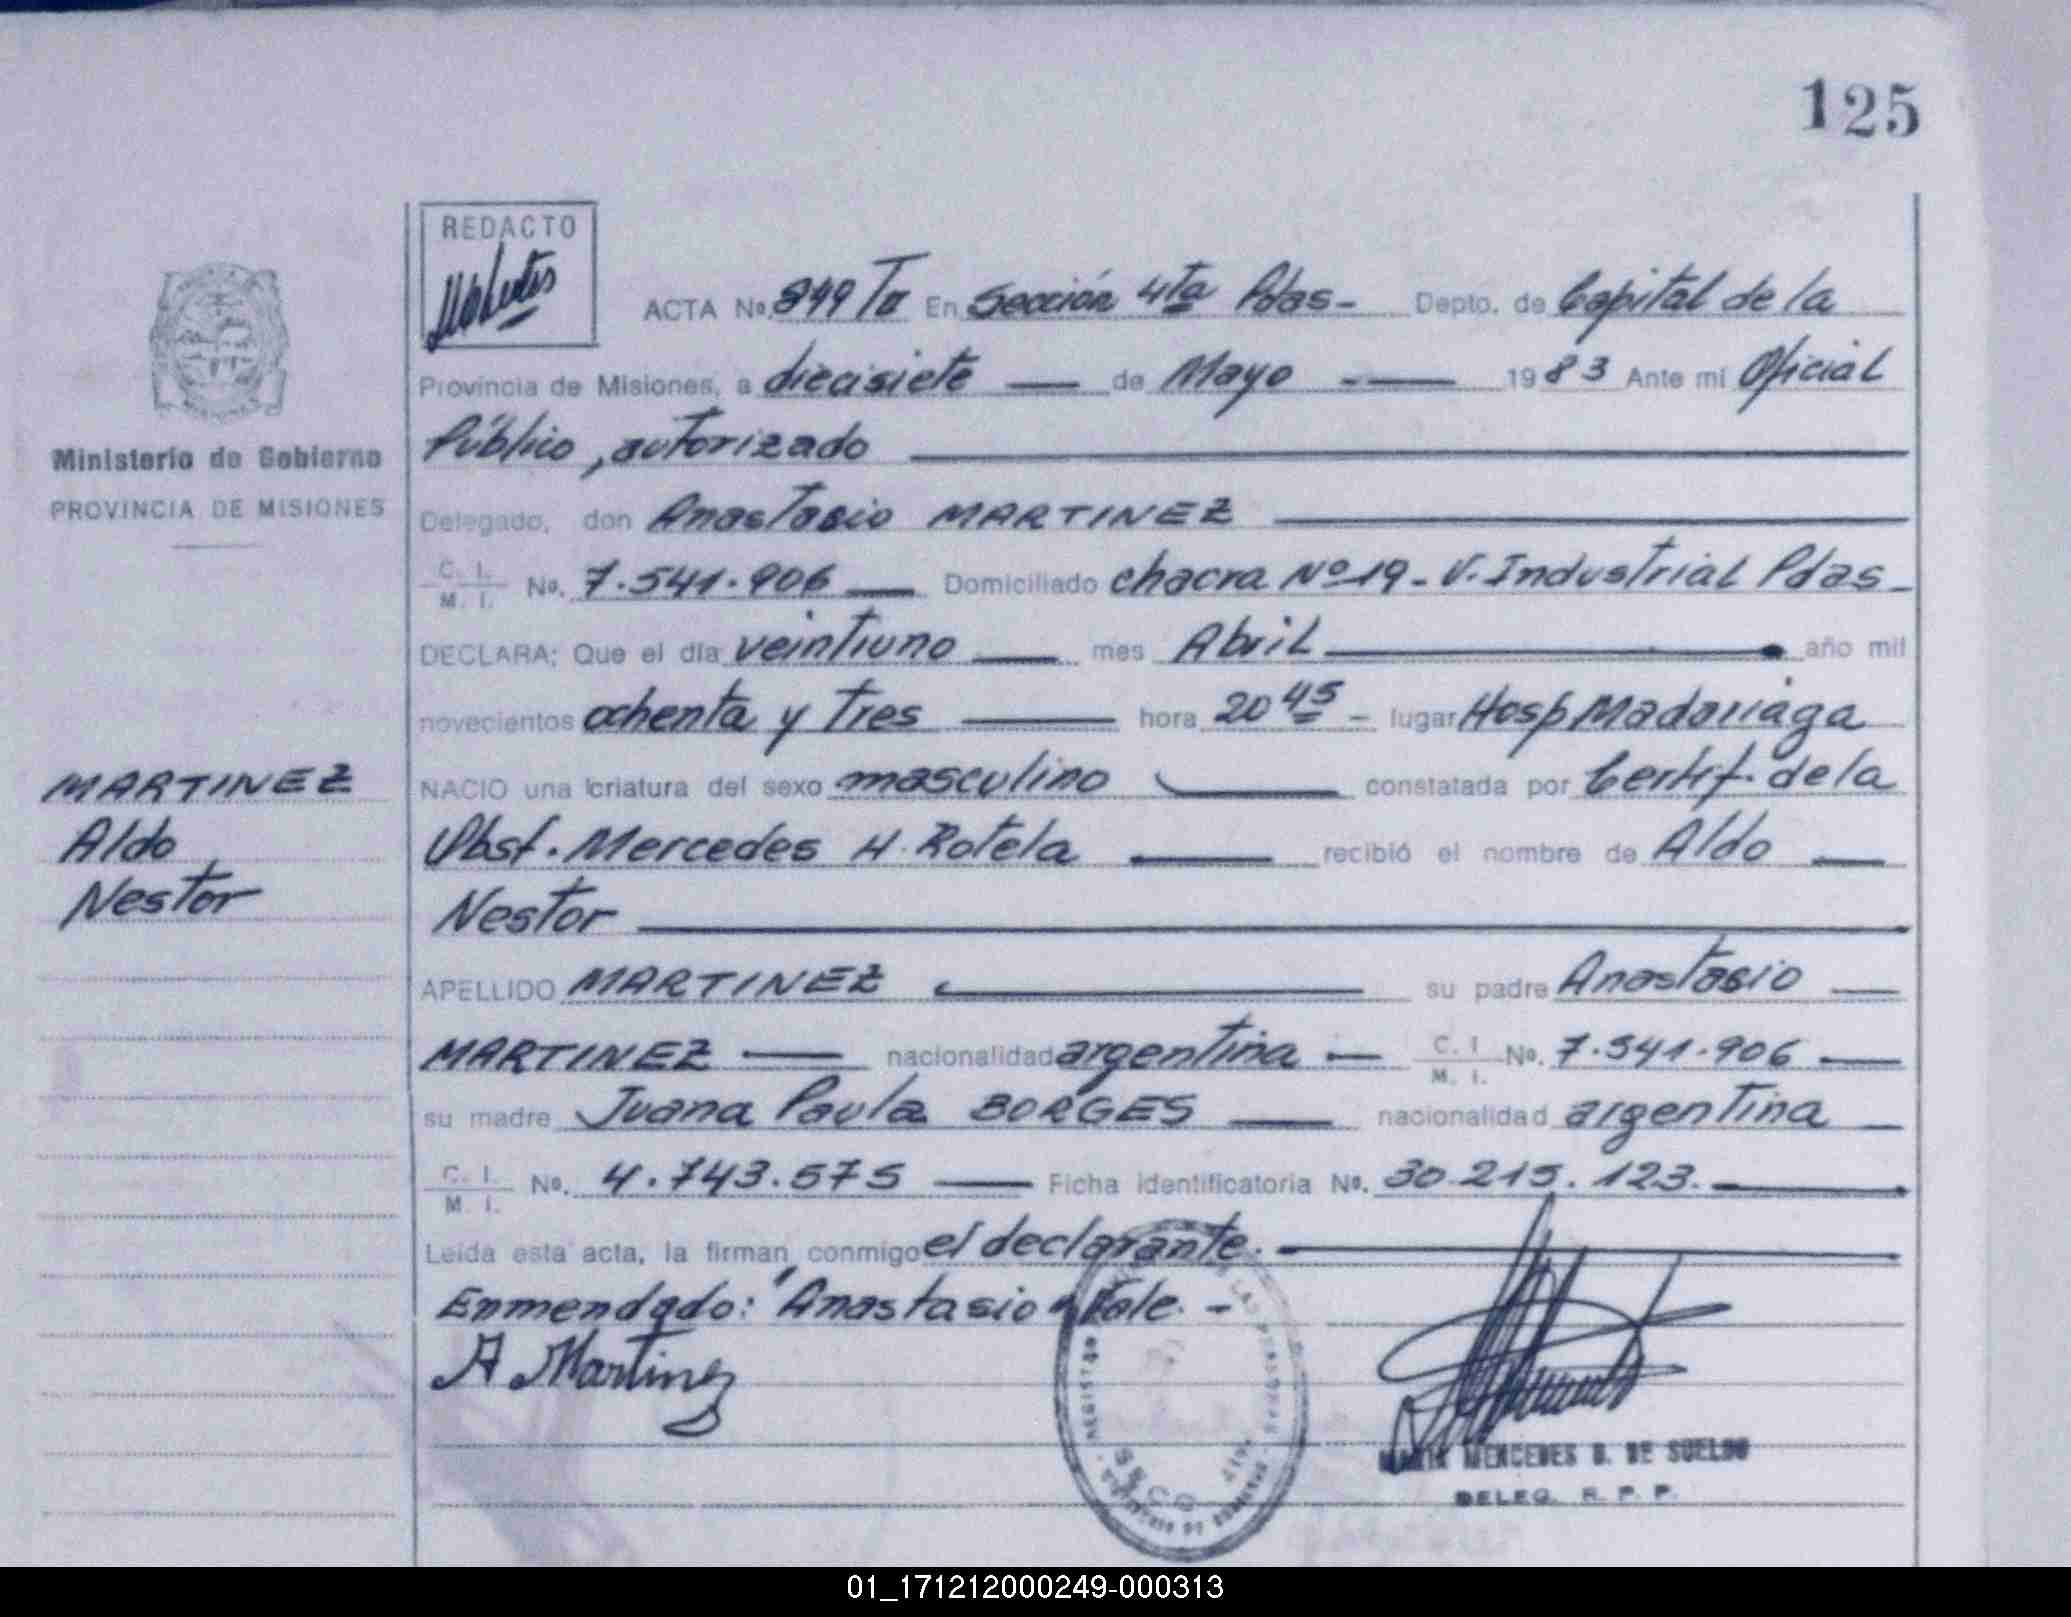 125
REDACTO
ACTA No. 849 To En Sección 4ta Pdas- Depto. de Capital de la
Provincia de Misiones, a diecisiete de Mayo 1983 Ante mi Oficial
Público, autorizado
Ministerio de Gobierno
PROVINCIA DE MISIONES
Delegado, don Anastasio MARTINEZ
C. I. M. I. No. 7.541.906 Domiciliado chacra Nº 19 - V. Industrial Pdas-
DECLARA: Que el día veintiuno mes Abril año mil
novecientos ochenta y tres hora 20 45 - lugar Hosp Madariaga
MARTINEZ
Aldo
Nestor
NACIO una criatura del sexo masculino constatada por Certif. de la
Obst. Mercedes H. Rotela recibió el nombre de Aldo
Nestor
APELLIDO MARTINEZ su padre Anastasio
MARTINEZ nacionalidad argentina C. I. M. I. No. 7.541.906
su madre Juana Paula BORGES nacionalidad argentina
C. I. M. I. No. 4.743.575 Ficha identificatoria No. 30.215.123.
Leída esta acta, la firman conmigo el declarante.
Enmendado: "Anastasio" Vale. -
A Martinez
MARIA MERCEDES B. DE SUELDO
DELEG. R. P. P.
01_171212000249-000313